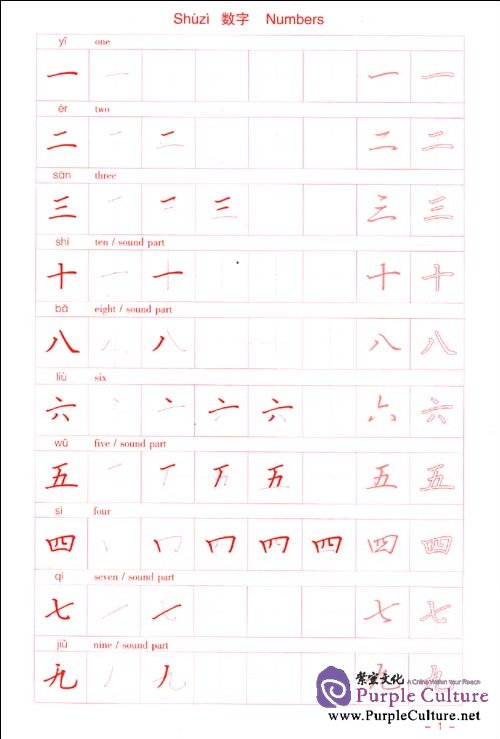 Shùzì 数字 Numbers
yī one
一 一 一 一
èr two
二 一 二 二 二
sān three
三 一 二 三 三 三
shí ten / sound part
十 一 十 十 十
bā eight / sound part
八 丿 八 八 八
liù six
六 丶 亠 六 六 六 六
wǔ five / sound part
五 一 丅 五 五 五 五
sì four
四 丨 冂 四 四 四 四 四
qī seven / sound part
七 一 七 七 七
jiǔ nine / sound part
九 丿 九 九 九
紫宣文化 A China Within Your Reach
Purple Culture
www.PurpleCulture.net
– 1 –